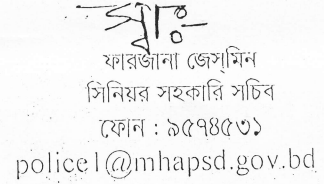 স্বাঃ
ফারজানা জেস্‌মিন
সিনিয়র সহকারি সচিব
ফোন : ৯৫৭৪৫৩১
police1@mhapsd.gov.bd